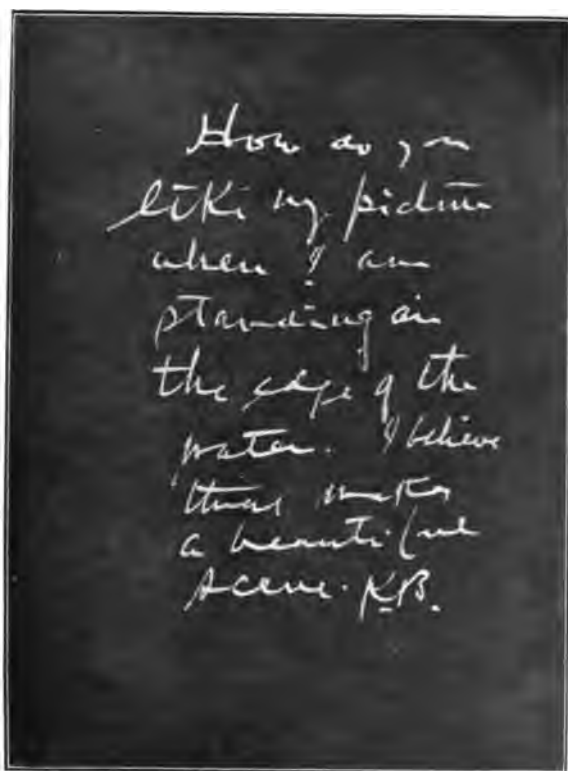 How do you
like my picture
when I am
standing in
the edge of the
water. I believe
that makes
a beautiful
scene. K.B.